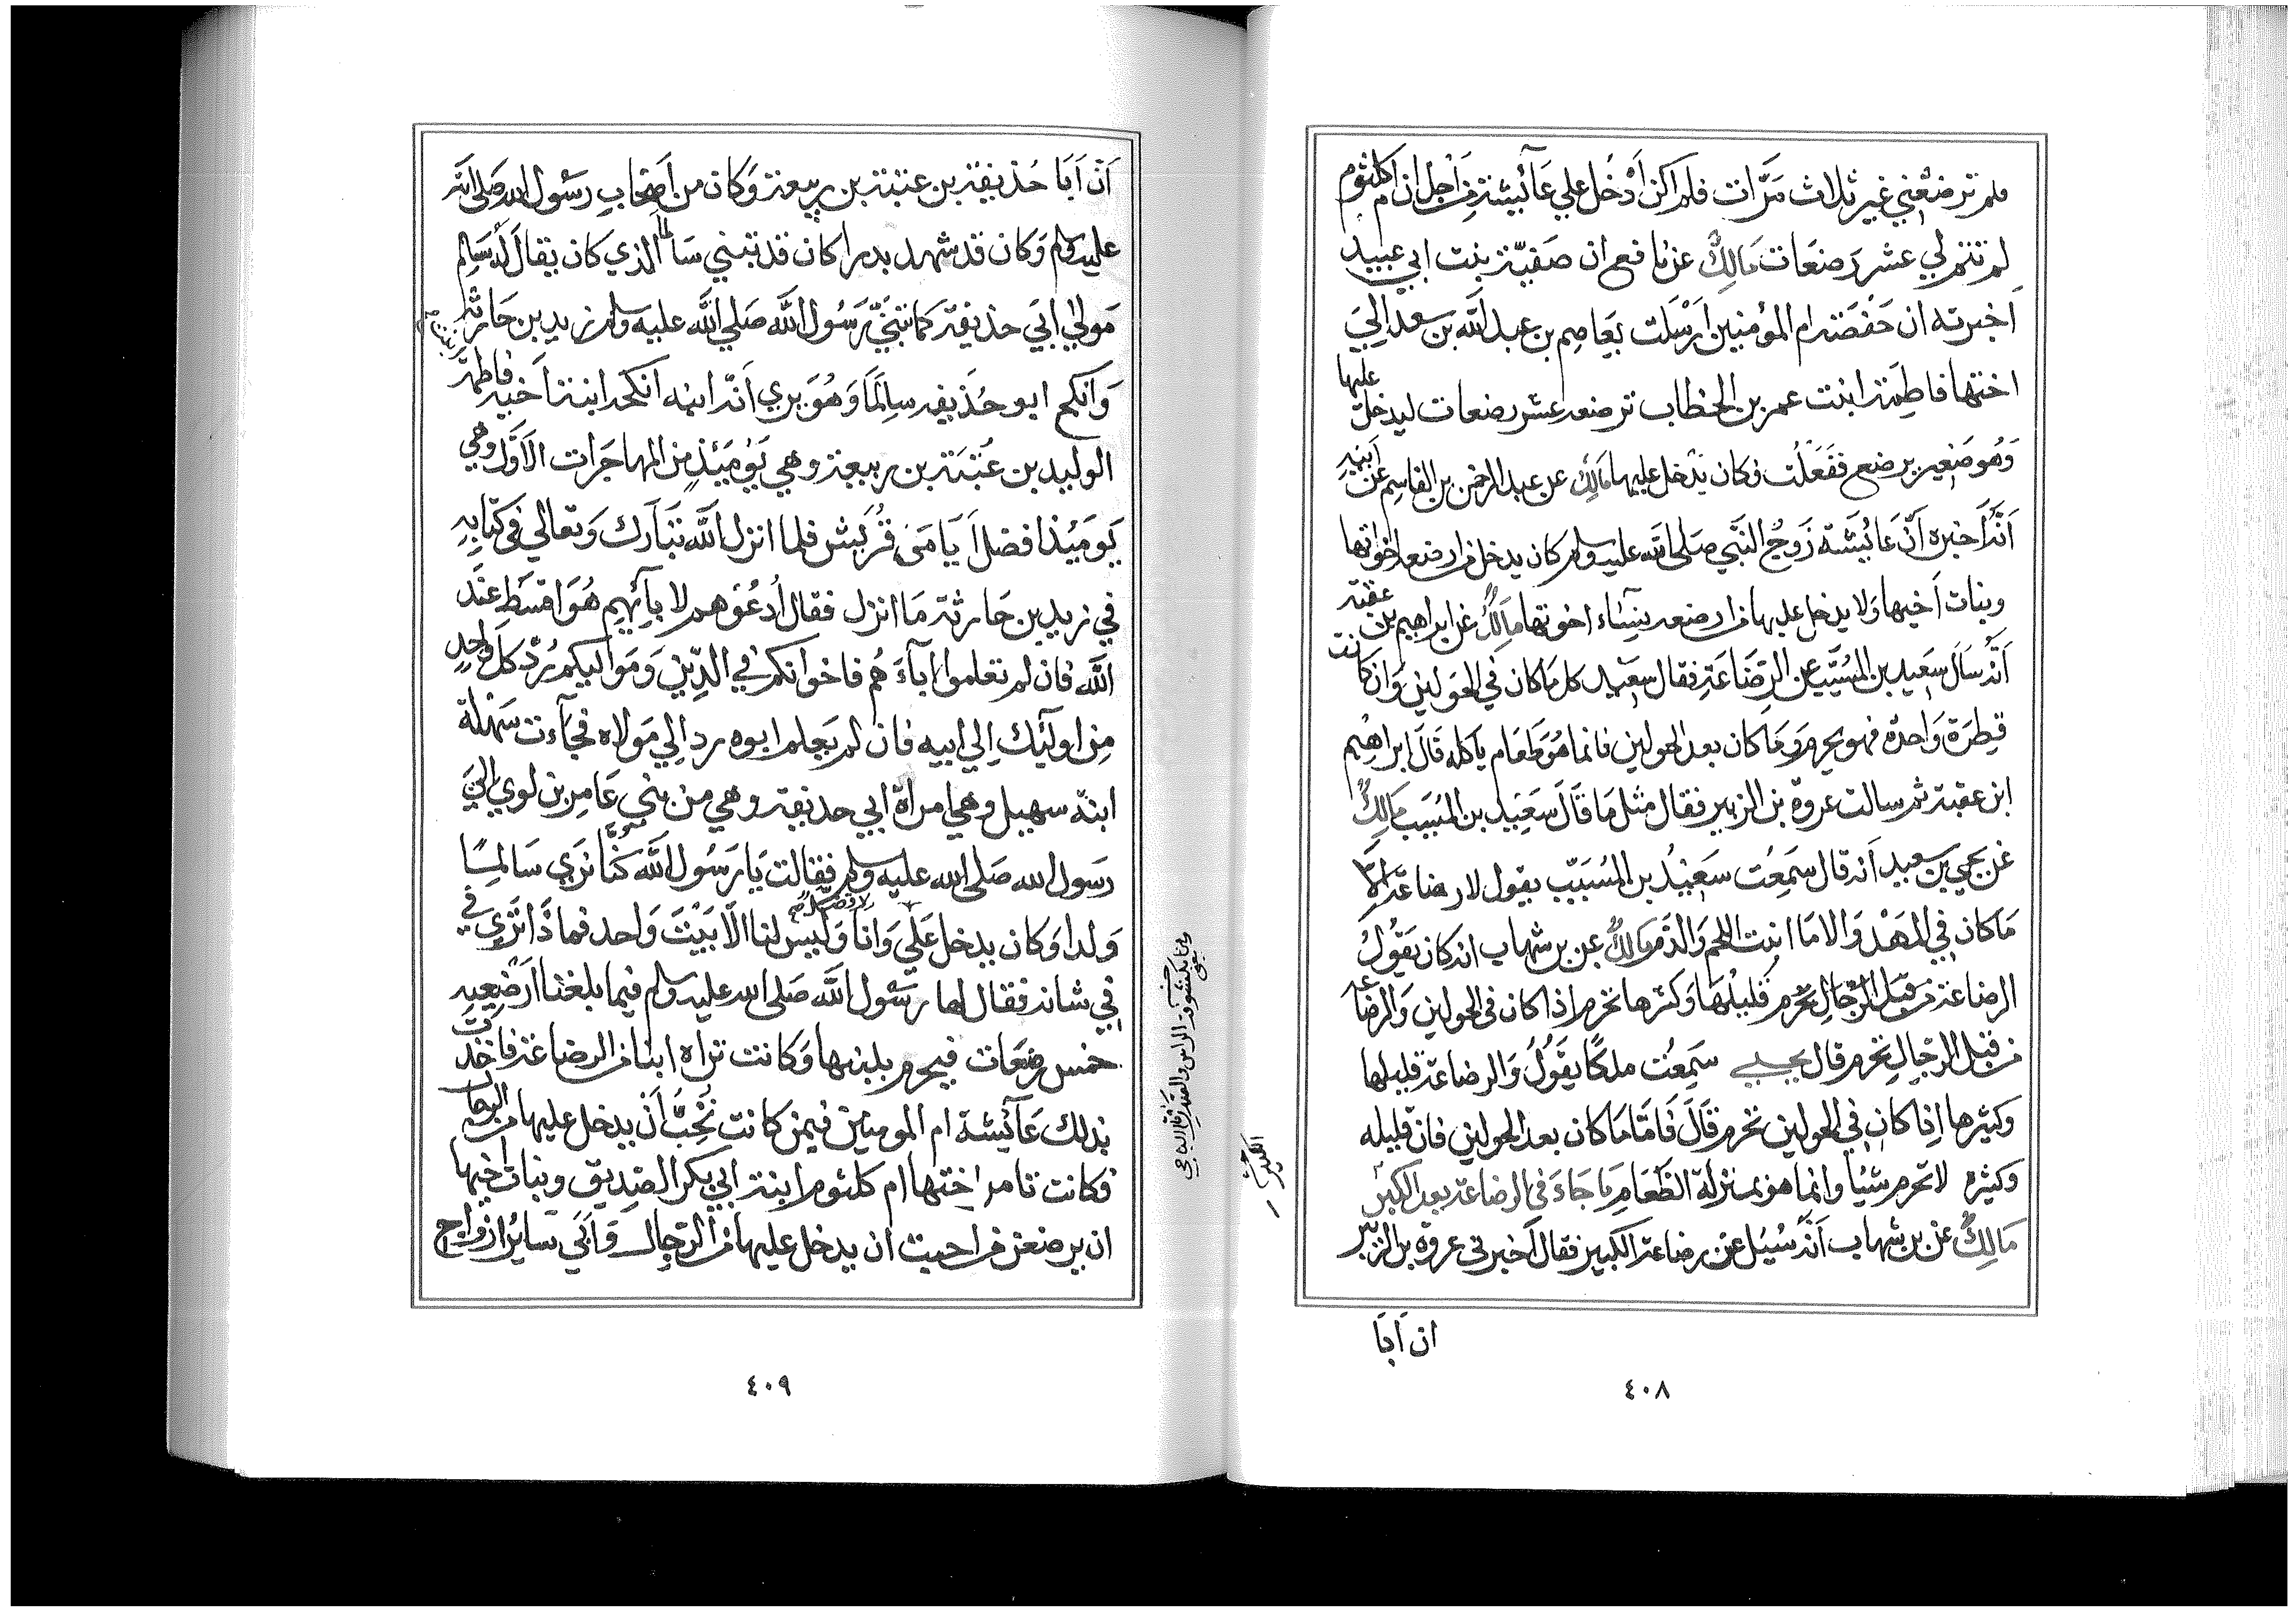 فلم ترضعني غير ثلاث مرّات فلم اكن أدْخُل علي عَآئيشة من أجْل ان ام كلثوم
لم تتم لي عشر رَضعَات مَالِكٌ عن نافع ان صَفيّة بنت ابي عبيد
اخبرته ان حَفْصَة ام المؤمنين أرْسَلت بعَاصِم بن عبد الله بن سعد اليَ
اختها فاطِمَة ابنت عمر بن الخطاب ترضعه عشر رضعات ليدخل عليها
وَهُو صَغير يرضع ففَعَلْت فكان يَدْخل عليها مَالِكٌ عن عبد الرحمن بن القاسِم عن ابَيه
أنَّه أخبره أنّ عَائيشَة زَوجُ النَّبي صَلى الله عليه وسلم كان يدخل من ارضعه اخواتها
وبنات أخيها وَلا يدخل عليها من ارضعه نِسَاء اخوتها مَالِكٌ عن ابراهيم بن عقبة
أنَّه سَاَل سَعيد بن المُسَيَّب عن الرّضَاعَةِ فقال سَعَيد كل مَا كان في الحَولين وَان كانت
قطِرَة وَاحدة فهو يحرم وَمَا كان بعد الحولين فانما هُوَ طَعَام ياكله قَالَ ابراهيم
ابن عقبة ثم سالت عروة بن الزبير فقال مثل مَا قَالَ سَعَيد بن المُسَيب مَالِكٌ
عن يحيي بن سعيد أنه قال سَمِعْت سَعَيْدُ بن المُسَيّب يقول لا رضاعَة الا
مَا كان في المَهْد وَالا مَا انبت اللحم وَالدَّم مَالِكٌ عن بن شهاب انه كان يَقُولُ
الرضاعة من قبَل الرّجَال تحرم قَليلهَا وَكثرها تحرم اذا كان في الحولين وَالرضاعة
من قبَل الرّجَالِ تحرم قال يحيي سَمِعْت ملكًا يَقُولُ وَالرضاعة قليلها
وكثيرها اذا كان في الحولين تحرم قَالَ فَامَّا مَا كان بعد الحولين فانّ قليله
وكثيره لا تحرم شَيًا وانما هو بمنزلة الطَّعَام مَا جَاءَ في الرضاعة بعد الكبر
مَالِكٌ عن بن شهاب أنَّه سُيئل عن رضاعة الكبير فقال أخبرني عروة بن الزبير
ان ابَا
٤٠٨
أنّ أبَا حُذيفة بن عتبة بن ربيعة وَكان من أصحَابِ رسُول الله صَلى الله
عليه وسلم وَكان قد شهد بدرا كان قد تبني سَالما الذي كان يقال لَه سَالِم
مَولي ابَي حذيفة كما تبَنَّي رَسُول الله صَلي الله عليه وسلم زيد بن حَارثة
وَأنكح ابو حُذَيفه سَالِمًا وَهُوَ يري أنّه ابنه انكحه ابنة اخيه فاطمة
الوليد بن عُتْبَة بن ربيعة وهي يَوْمَيئذ من المهاجَرات الاَوَّل وهي
يَومَيئذ افضل أَيَامَي قُرَيش فلما انزل الله تَبَارك وَتعالي في كتابِه
في زيد بن حَارثة مَا انزل فقال اُدْعُوهم لابآئهم هُوَ اقسَط عند
الله فان لم تعلموا ابآءَ هُم فاخوانكم في الدِّين وَمَواليكم رُدّ كل وَاحِدٍ
من اولَئك اِلي ابيه فان لم يَعلم ابوه رد الِي مَولاه فجآءت سَهْلَة
ابنة سهيل وهي امرأة ابي حذيفة وهي من بني عَامِر بن لوي اليَ
رَسول الله صَلى الله عليه وسلم فقالت يَا رَسُول الله كُنَّا نرَي سَالمًا
وَلدا وَكان يدخل عَلَي وَانَا وَلَيس لنا الاّ بَيْت وَاحد فماذَا تَرَي في
في شانه فقال لها رسُول الله صَلى الله عليه وسلم فيما بلغنا اَرْضعيه
خمس رضَعَات فيحرم بلبنها وَكانت تراه ابنا من الرضاعة فاخَذت
بذلك عَآئيشة ام المومنين فيمن كانت تُحبُّ أن يدخل عليها من الرجال
فكانت تامر اختها ام كلثوم ابنة ابي بكر الصديق وبنات اخيها
ان يرضعن من احبت ان يدخل عليها من الرّجال وَاَبَي سَائر ازواج
٤٠٩